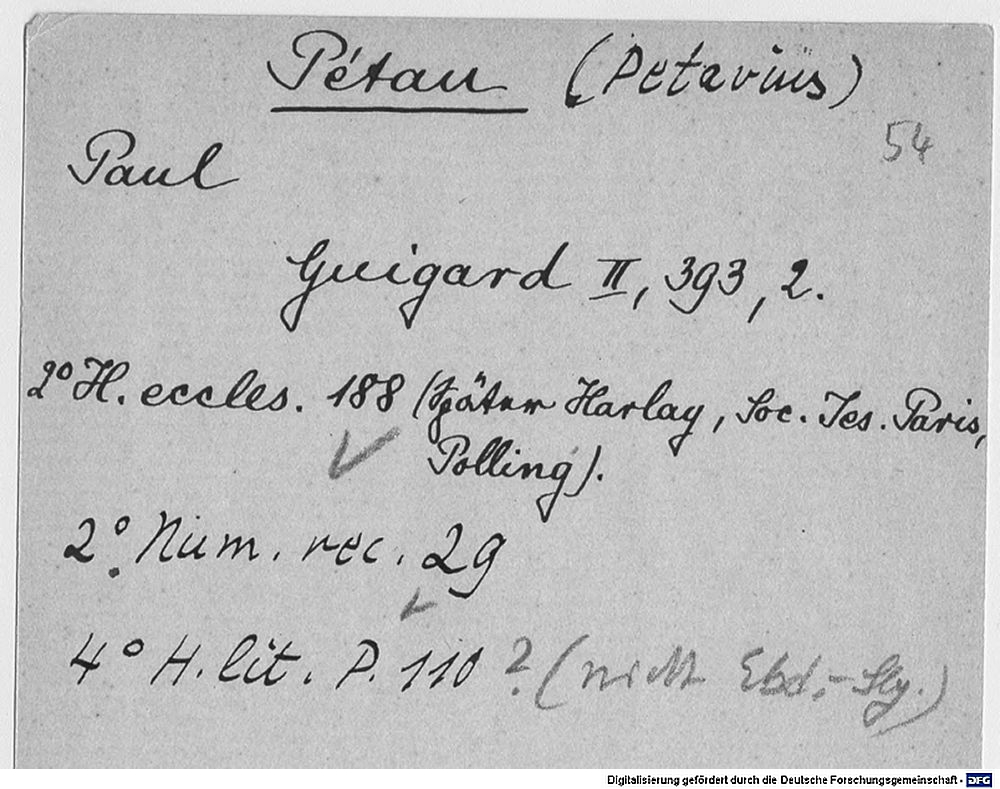 Pétau (Petavius)
54
Paul
Guigard II, 393, 2.
2° H. eccles. 188 (später Harlay, Soc. Jes. Paris,
Polling).
2° Num. rec. 29
4° H. lit. P. 110 ? (nicht Ebd.-Slg.)
Digitalisierung gefördert durch die Deutsche Forschungsgemeinschaft - DFG